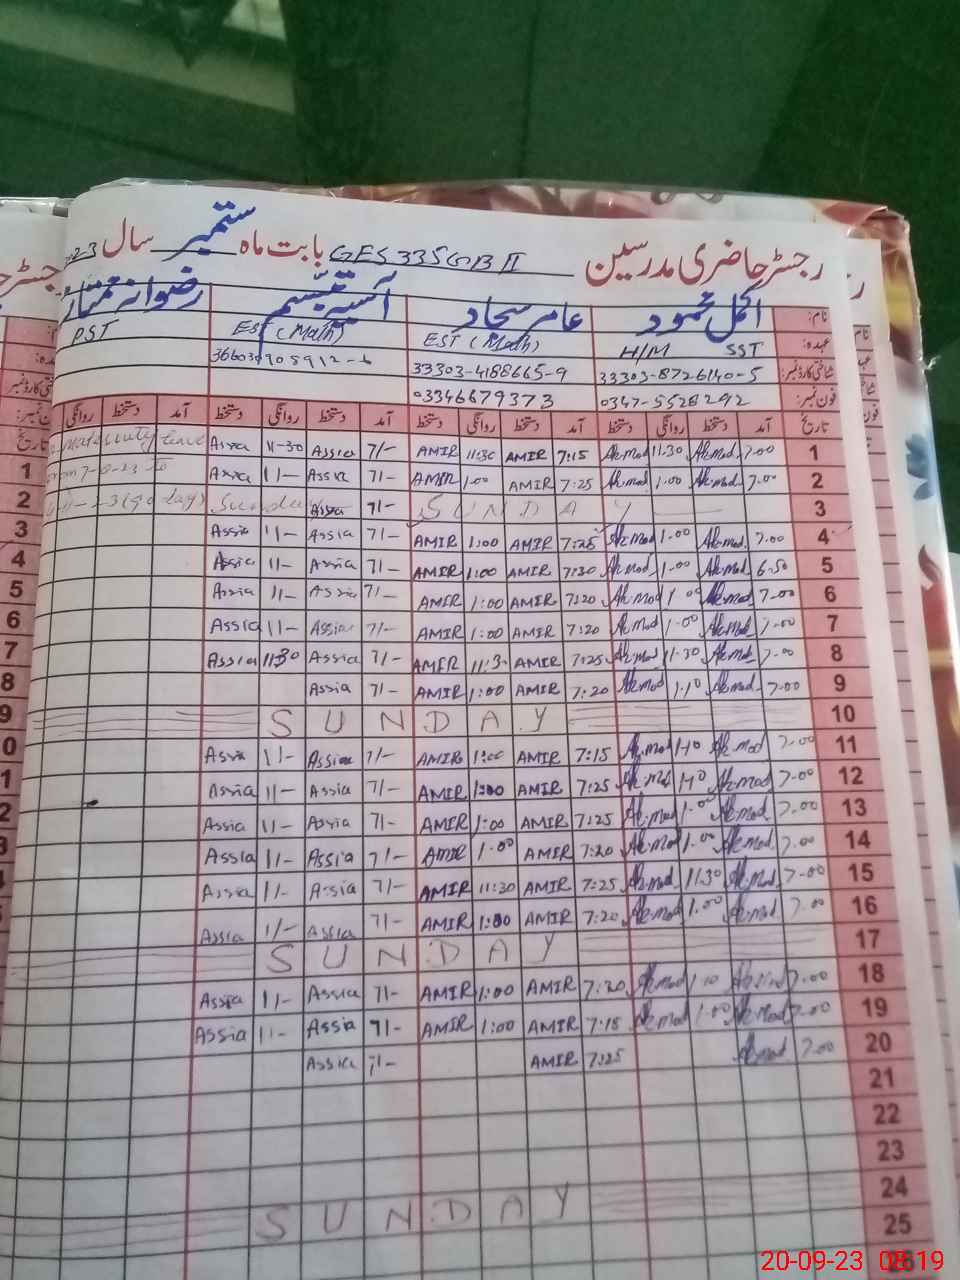 رجسٹر حاضری مدرسین GES 335GB II بابت ماہ ستمبر سال 23
نام: اکمل محمود عامر سجاد آسیہ تبسم رضوانہ ممتاز
عہدہ: H/M SST EST (Math) EST (Math) PST
شناختی کارڈ نمبر 33303-8726140-5 33303-4188665-9
فون نمبر: 0347-5528292 03346679373
تاریخ آمد دستخط روانگی دستخط آمد دستخط روانگی دستخط آمد دستخط روانگی دستخط آمد دستخط روانگی
1 7.00 Akmod 11.30 Akmod 7:15 AMIR 11:30 AMIR 7/- Assia 11-30 Assia Maternity leave
2 7.00 Akmod 1.00 Akmod 7:25 AMIR 1:00 AMIR 7/- Assia 11- Assia
3 SUNDAY 7/- Assia Sunday (90 days)
4 7.00 Akmod 1.00 Akmod 7:25 AMIR 1:00 AMIR 7/- Assia 11- Assia
5 6.50 Akmod 1.00 Akmod 7:30 AMIR 1:00 AMIR 7/- Assia 11- Assia
6 7.00 Akmod 1.00 Akmod 7:20 AMIR 1:00 AMIR 7/- Assia 11- Assia
7 7.00 Akmod 1.00 Akmod 7:20 AMIR 1:00 AMIR 7/- Assia 11- Assia
8 7.00 Akmod 11.30 Akmod 7:25 AMIR 11:3 AMIR 7/- Assia 11:30 Assia
9 7.00 Akmod 1.10 Akmod 7:20 AMIR 1:00 AMIR 7/- Assia
10 SUNDAY
11 7.00 Akmod 1.10 Akmod 7:15 AMIR 1:00 AMIR 7/- Assia 11- Assia
12 7.00 Akmod 1.10 Akmod 7:25 AMIR 1:00 AMIR 7/- Assia 11- Assia
13 7.00 Akmod 1.00 Akmod 7:25 AMIR 1:00 AMIR 7/- Assia 11- Assia
14 7.00 Akmod 1.00 Akmod 7:20 AMIR 1.00 AMIR 7/- Assia 11- Assia
15 7.00 Akmod 11.30 Akmod 7:25 AMIR 11:30 AMIR 7/- Assia 11- Assia
16 7.00 Akmod 1.00 Akmod 7:20 AMIR 1:00 AMIR 7/- Assia 11- Assia
17 SUNDAY
18 7.00 Akmod 1.10 Akmod 7:20 AMIR 1:00 AMIR 7/- Assia 11- Assia
19 7.00 Akmod 1.00 Akmod 7:18 AMIR 1:00 AMIR 7/- Assia 11- Assia
20 7.00 Akmod 7:25 AMIR 7/- Assia
21
22
23
24 SUNDAY
25
20-09-23 08:19